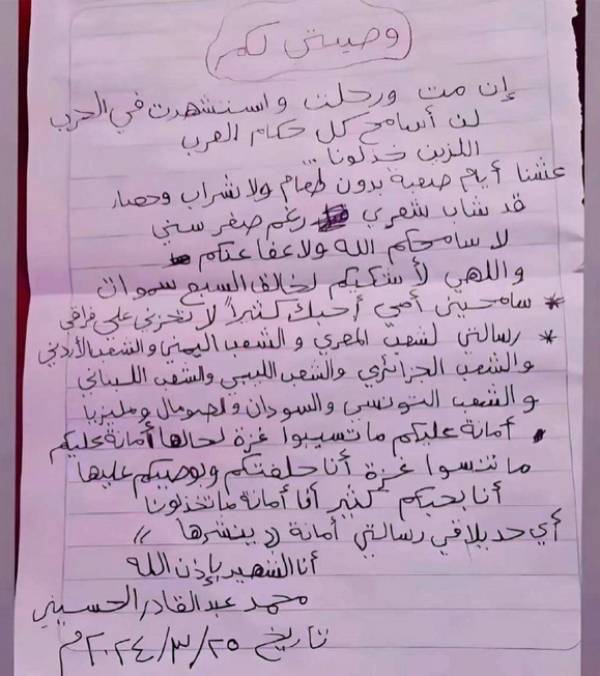 وصيتي لكم
إن مت ورحلت واستشهدت في الحرب
لن أسامح كل حكام العرب
اللزين خذلونا ...
عشنا أيام صعبة بدون طعام ولا شراب وحصار
قد شاب شعري رغم صغر سني
لا سامحكم الله ولا عفا عنكم
واللهي لأشكيكم لخالق السبع سموات
* سامحيني أمي أحبك كثيراً لا تحزني على فراقي
* رسالتي لشعب المصري والشعب اليمني والشعب الأردني
والشعب الجزائري والشعب الليبي والشعب اللبناني
والشعب التونسي والسودان ولصومال ومليزيا
أمانة عليكم ما تسيبوا غزة لحالها أمانة عليكم
ما تنسوا غزة أنا حلفتكم وبوصيكم عليها
أنا بحبكم كثير أنا أمانة ما تخذلونا
أي حد بلاقي رسالتي أمانة (( ينشرها ))
أنا الشهيد بإذن الله
محمد عبد القادر الحسيني
تاريخ ٢٠٢٤/٣/٢٥م